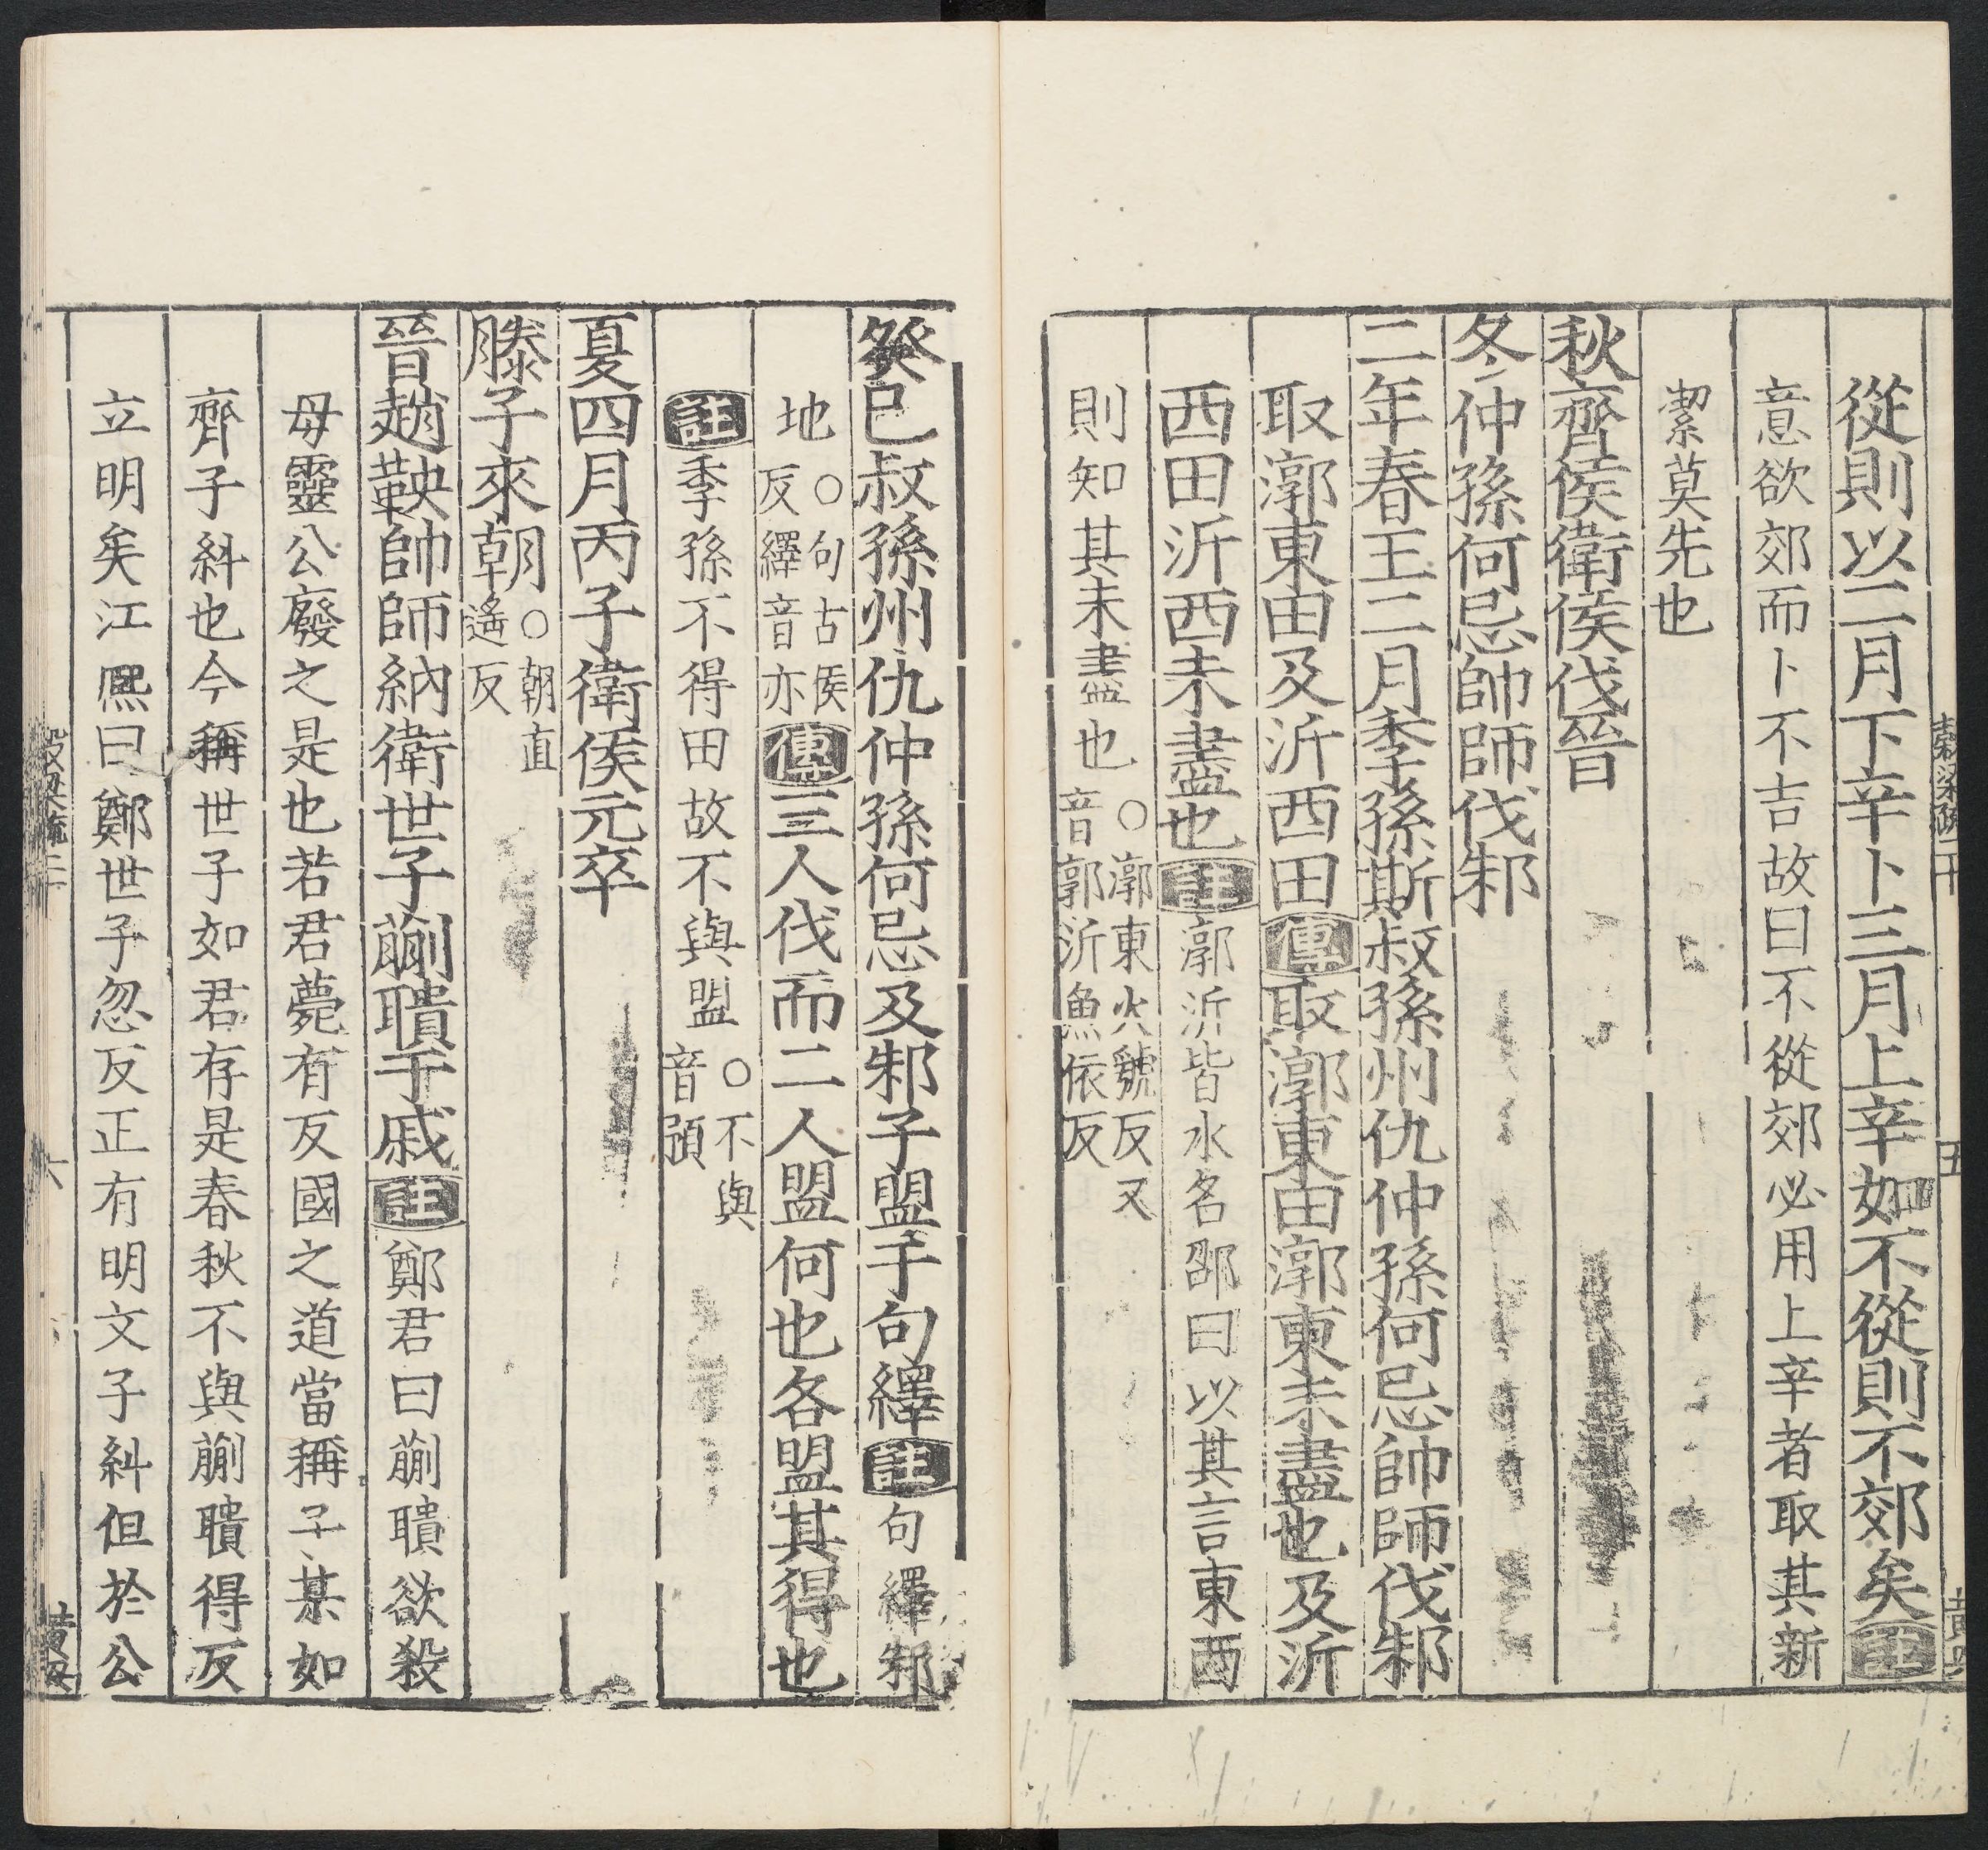 從則以二月下辛卜三月上辛如不從則不郊矣註
意欲郊而卜不吉故曰不從郊必用上辛者取其新
潔莫先也
秋齊侯衛侯伐晉
冬仲孫何忌帥師伐邾
二年春王二月季孫斯叔孫州仇仲孫何忌帥師伐邾
取漷東田及沂西田傳取漷東田漷東未盡也及沂
西田沂西未盡也註漷沂皆水名邵曰以其言東西
則知其未盡也○漷東火虢反又音郭沂魚依反
癸巳叔孫州仇仲孫何忌及邾子盟于句繹註句繹邾
地○句古侯反繹音亦傳三人伐而二人盟何也各盟其得也
註季孫不得田故不與盟○不與音預
夏四月丙子衛侯元卒
滕子來朝○朝直遙反
晉趙鞅帥師納衛世子蒯聵于戚註鄭君曰蒯聵欲殺
母靈公廢之是也若君薨有反國之道當稱子某如
齊子糾也今稱世子如君存是春秋不與蒯聵得反
立明矣江熙曰鄭世子忽反正有明文子糾但於公